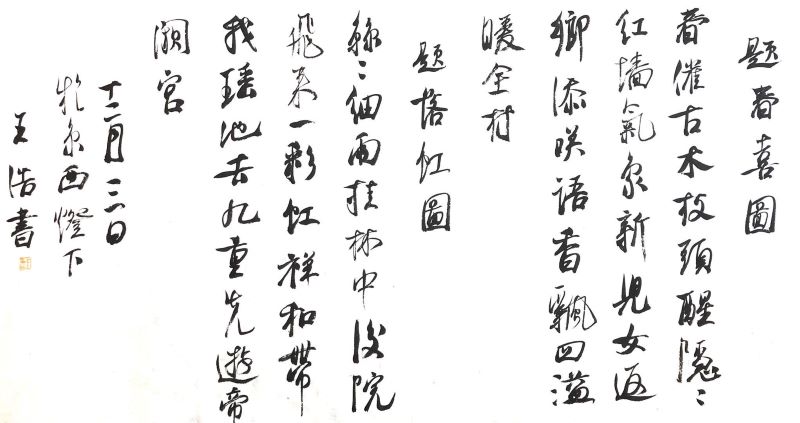 題春喜圖
春催古木枝頭醒隱〻
紅墻氣象新兒女返
鄉添咲語香飄四溢
暖全村
題落虹圖
〻細雨桂林中後院
飛來一彩虹祥和帶
我瑤池去九重先遊帝
闕宮
十二月日
於京西燈下
王浩書